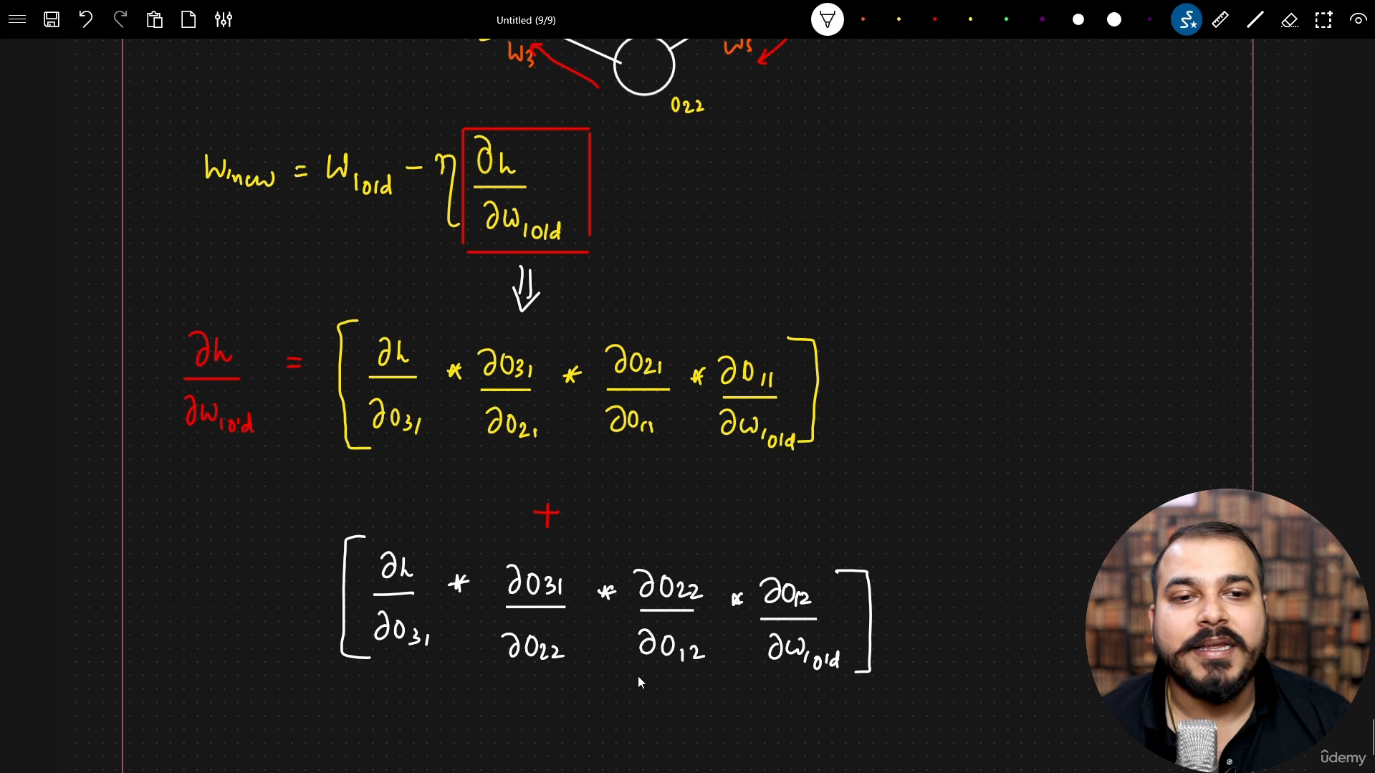 Untitled (9/9)
W3
W5
O22
W1new = W1old - η ∂h / ∂w1old
⇓
∂h / ∂w1old = [ ∂h / ∂O31 * ∂O31 / ∂O21 * ∂O21 / ∂O11 * ∂O11 / ∂w1old ]
+
[ ∂h / ∂O31 * ∂O31 / ∂O22 * ∂O22 / ∂O12 * ∂O12 / ∂w1old ]
ûdemy